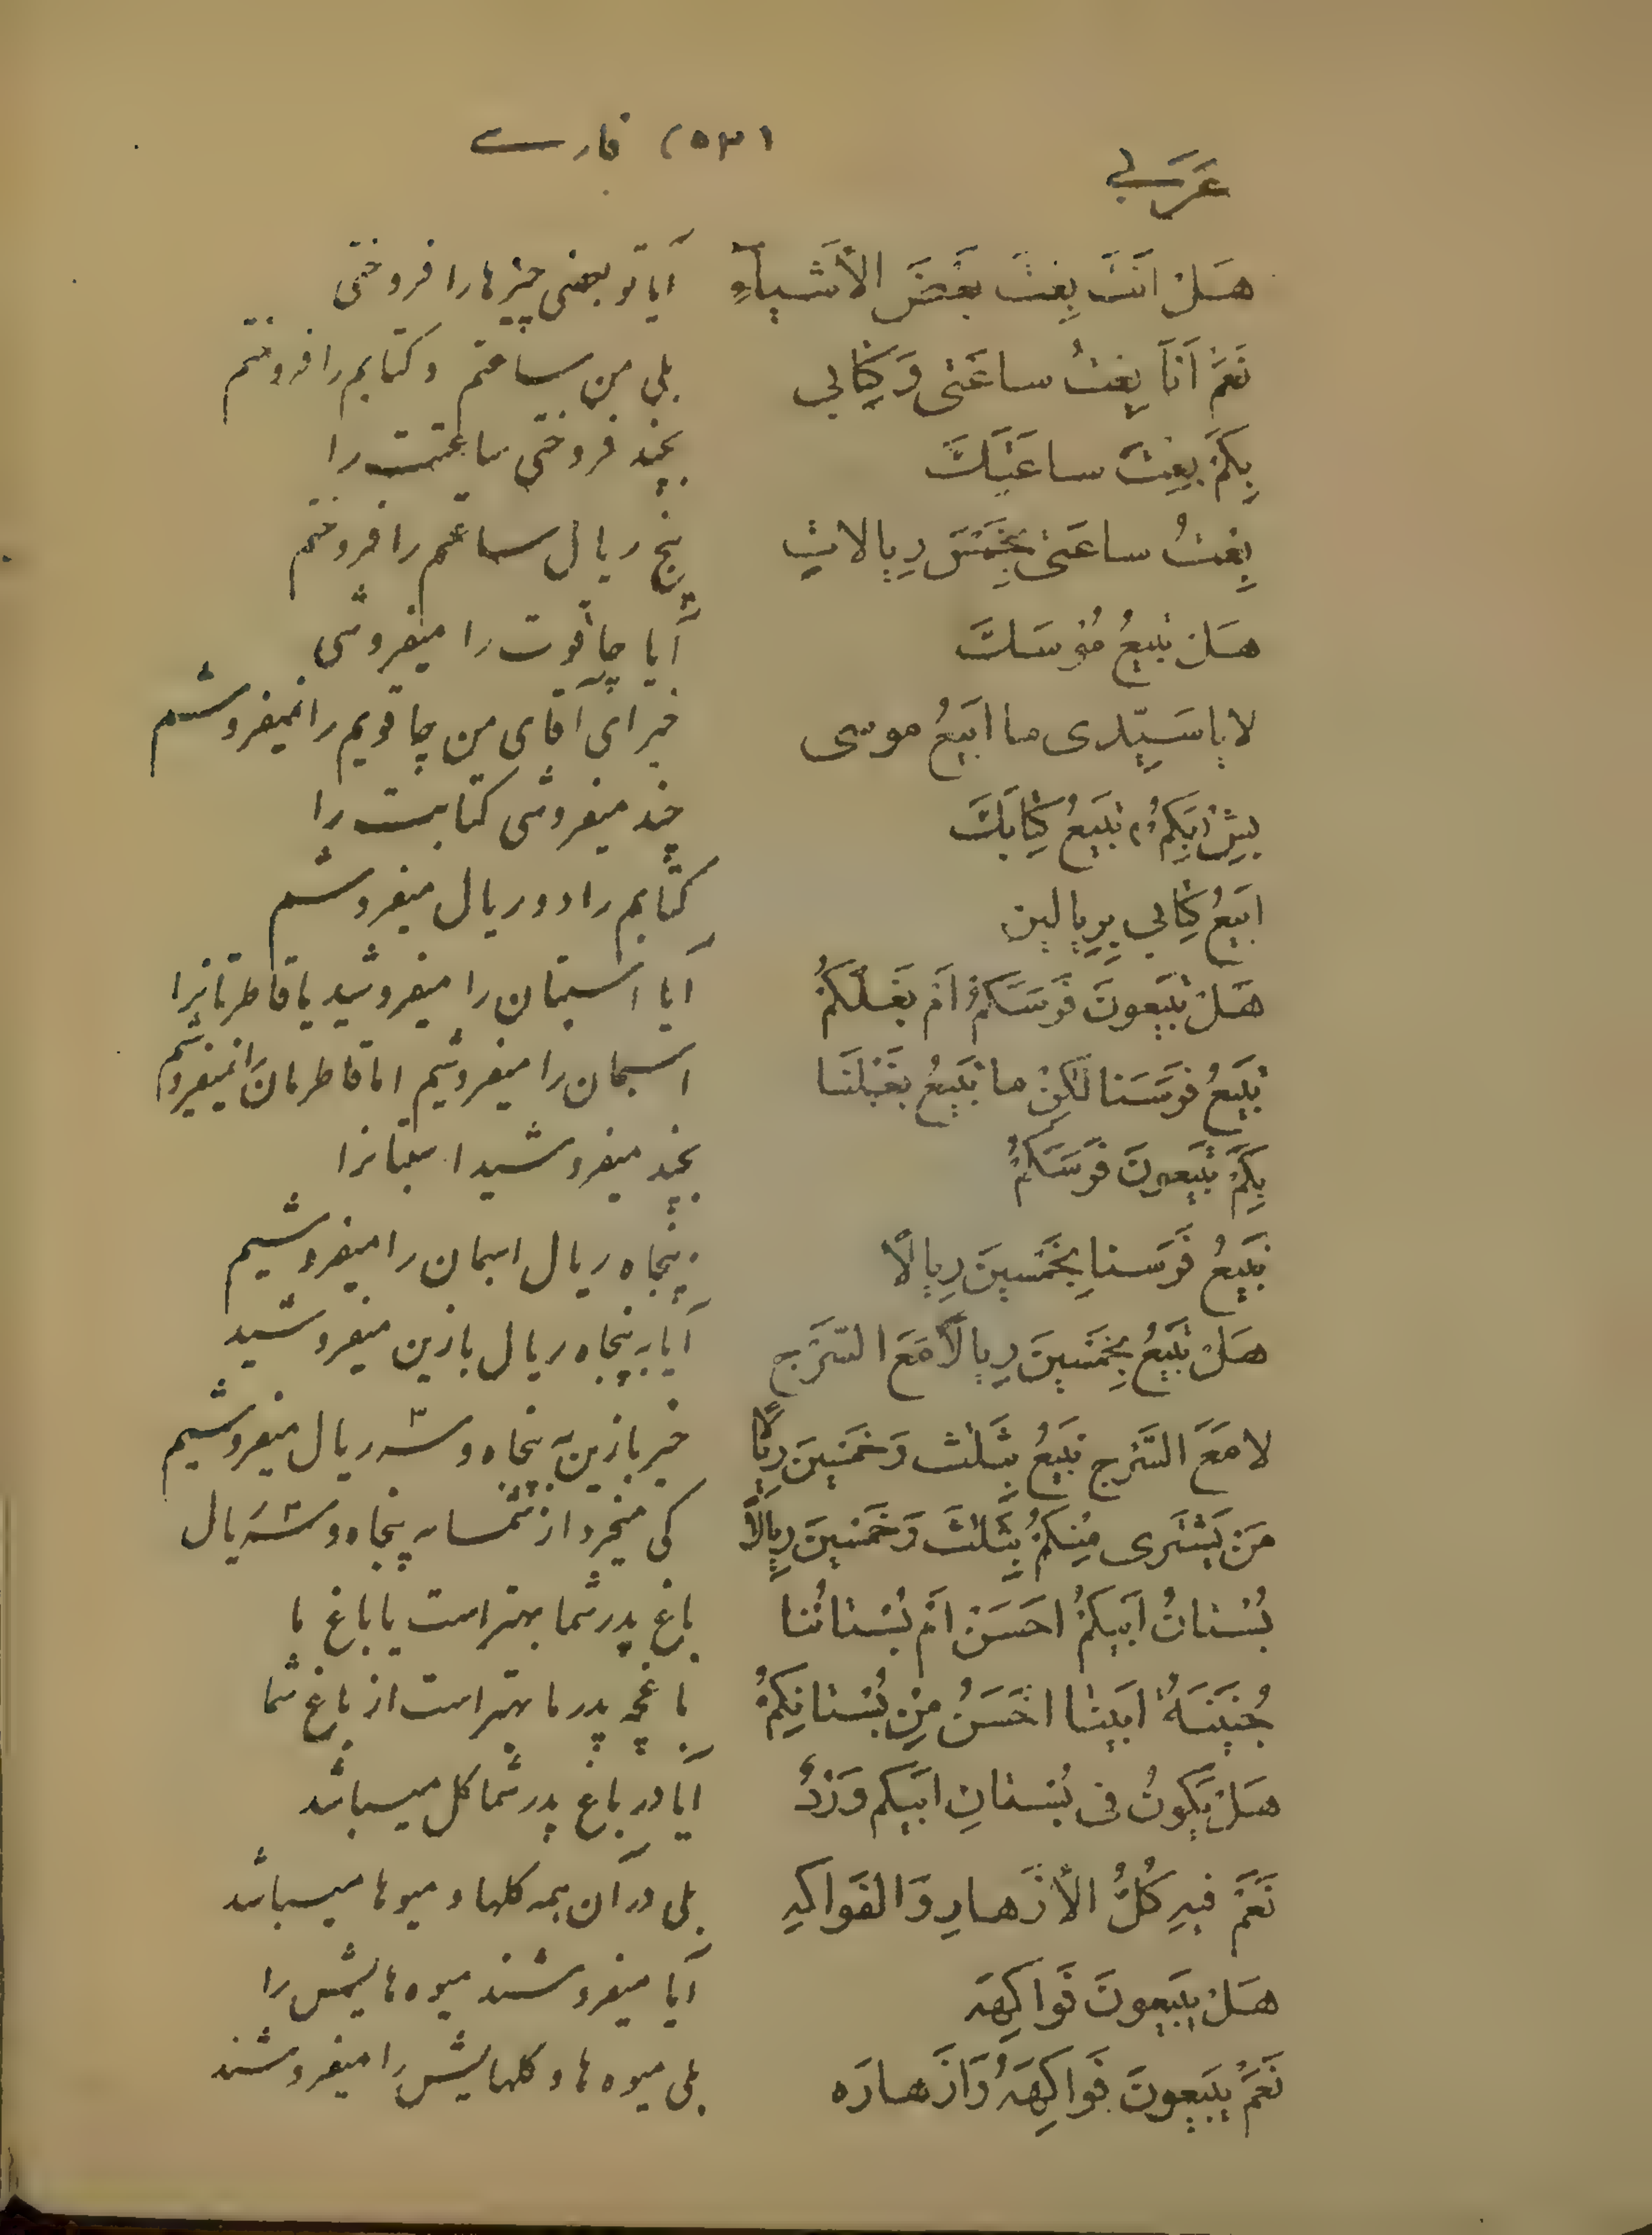 عَرَبي (٥٣١ فارسے
هَلْ اَنْتَ بِعْتَ بَعْضَ الأَشْيآءِ آیا تو بعضی چیزها را فروختی
نَعَمْ اَنَا بِعْتُ ساعَتی وَ کِتابی بلی من ساعتم و کتابم را فروختم
بِکَمْ بِعْتَ ساعَتَکَ بچند فروختی ساعتت را
بِعْتُ ساعَتی بِخَمْسَ رِیالاتٍ پنج ریال ساعتم را فروختم
هَلْ تَبیعُ مُوسَکَ آیا چاقوت را میفروشی
لا یا سَیِّدی ما اَبیعُ موسی خیر ای آقای من چاقویم را نمیفروشم
بِکَمْ تَبیعُ کِتابَکَ چند میفروشی کتابت را
اَبیعُ کِتابی بِرِیالین کتابم را دو ریال میفروشم
هَلْ تَبیعونَ فَرَسَکُمْ اَمْ بَغْلَکُمْ آیا اسبتان را میفروشید یا قاطرتانرا
نَبیعُ فَرَسَنا لکِنْ ما نَبیعُ بَغْلَنا اسبمان را میفروشیم اما قاطرمان را نمیفروشیم
بِکَمْ تَبیعونَ فَرَسَکُمْ بچند میفروشید اسبتانرا
نَبیعُ فَرَسَنا بِخَمْسینَ رِیالًا پنجاه ریال اسبمان را میفروشیم
هَلْ تَبیعُ بِخَمْسینَ رِیالًا مَعَ السَّرْج آیا به پنجاه ریال بازین میفروشید
لا مَعَ السَّرْج نَبیعُ بِثَلٰث وَ خَمْسینَ رِیالًا خیر بازین پنجاه و سه ریال میفروشیم
مَنْ یَشْتَری مِنْکُمْ بِثَلٰثَ وَ خَمْسینَ رِیالًا کی میخرد از شما به پنجاه و سه ریال
بُسْتانُ اَبیکُمْ اَحسَنْ اَمْ بُسْتانُنا باغ پدر شما بهتر است یا باغ ما
جُنَیْنَةُ اَبینا اَحْسَنُ مِنْ بُسْتانِکُمْ باغچه پدر ما بهتر است از باغ شما
هَلْ یَکُونُ فی بُسْتانِ اَبیکم وَرْدٌ آیا در باغ پدر شما گل میباشد
نَعَمْ فیهِ کُلُّ الأَزْهارِ وَالفَواکِهِ بلی در آن همه گلها و میوها میباشد
هَلْ یَبیعونَ فَواکِهَه آیا میفروشند میوه هایش را
نَعَمْ یَبیعونَ فَواکِهَهُ وَ اَزْهارَه بلی میوه ها و گلهایش را میفروشند